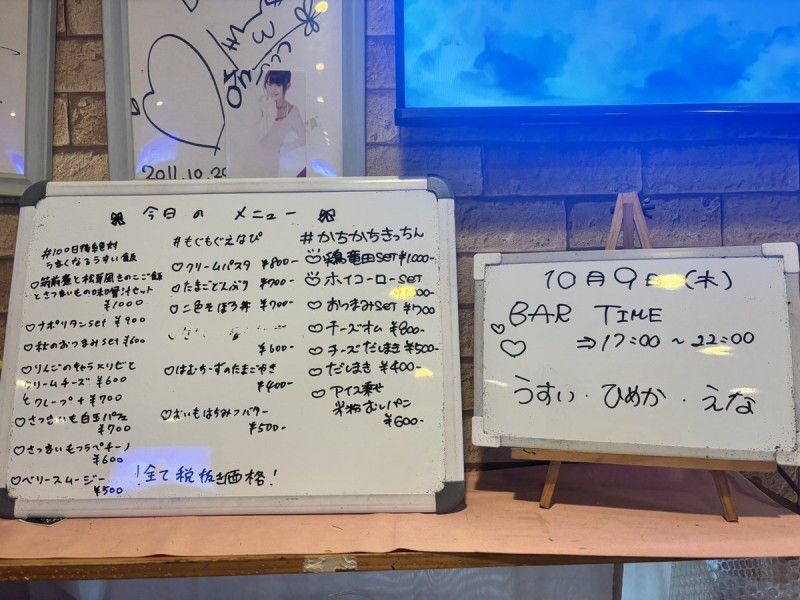 2011.10.20
今日の メニュー
#100日後絶対
うまくなるうすい飯
♡筑前煮と松茸風きのこご飯
とさつまいもの味噌汁セット
¥1000
♡ナポリタンset ¥900
♡秋のおつまみset ¥600
♡りんごのキャラメリゼと
クリームチーズ ¥600
とクレープ+ ¥700
♡さつまいも白玉パフェ
¥700
♡さつまいもフラペチーノ
¥600
♡ベリースムージー
¥500
#もぐもぐえなぴ
♡クリームパスタ ¥800-
♡たまごどんぶり ¥700-
♡二色そぼろ丼 ¥700-
¥600-
♡はむちーずのたまごやき
¥400-
♡おいもはちみつバター
¥500-
#かちかちきっちん
♡鶏竜田SET ¥1,000-
♡ホイコーローSET
♡おつまみSET ¥700
♡チーズオム ¥800-
♡チーズだしまき ¥500-
♡だしまき ¥400-
♡アイス乗せ
米粉むしパン
¥600-
!全て税抜き価格!
10月9日(木)
♡BAR TIME
♡ ⇒17:00~22:00
うすい・ひめか・えな